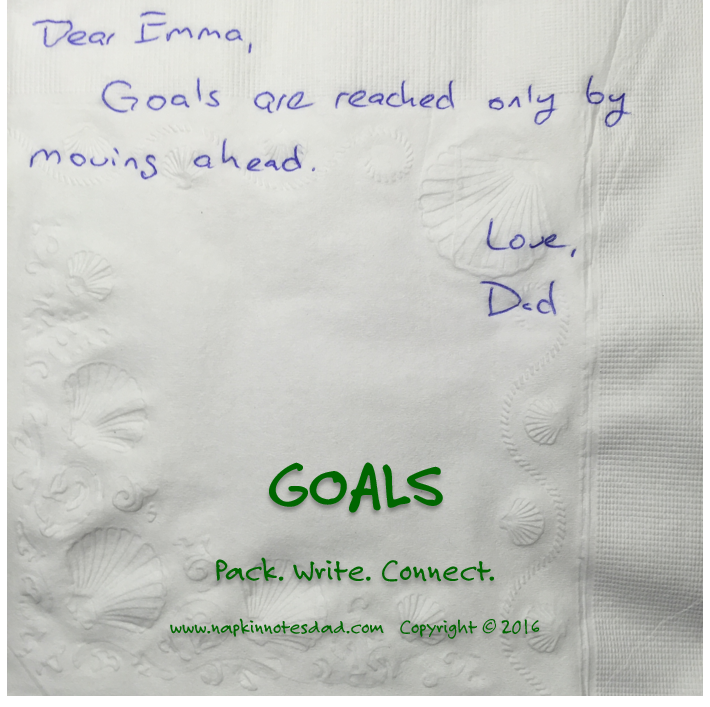 Dear Emma,
Goals are reached only by
moving ahead.
Love,
Dad
GOALS
Pack. Write. Connect.
www.napkinnotesdad.com Copyright © 2016